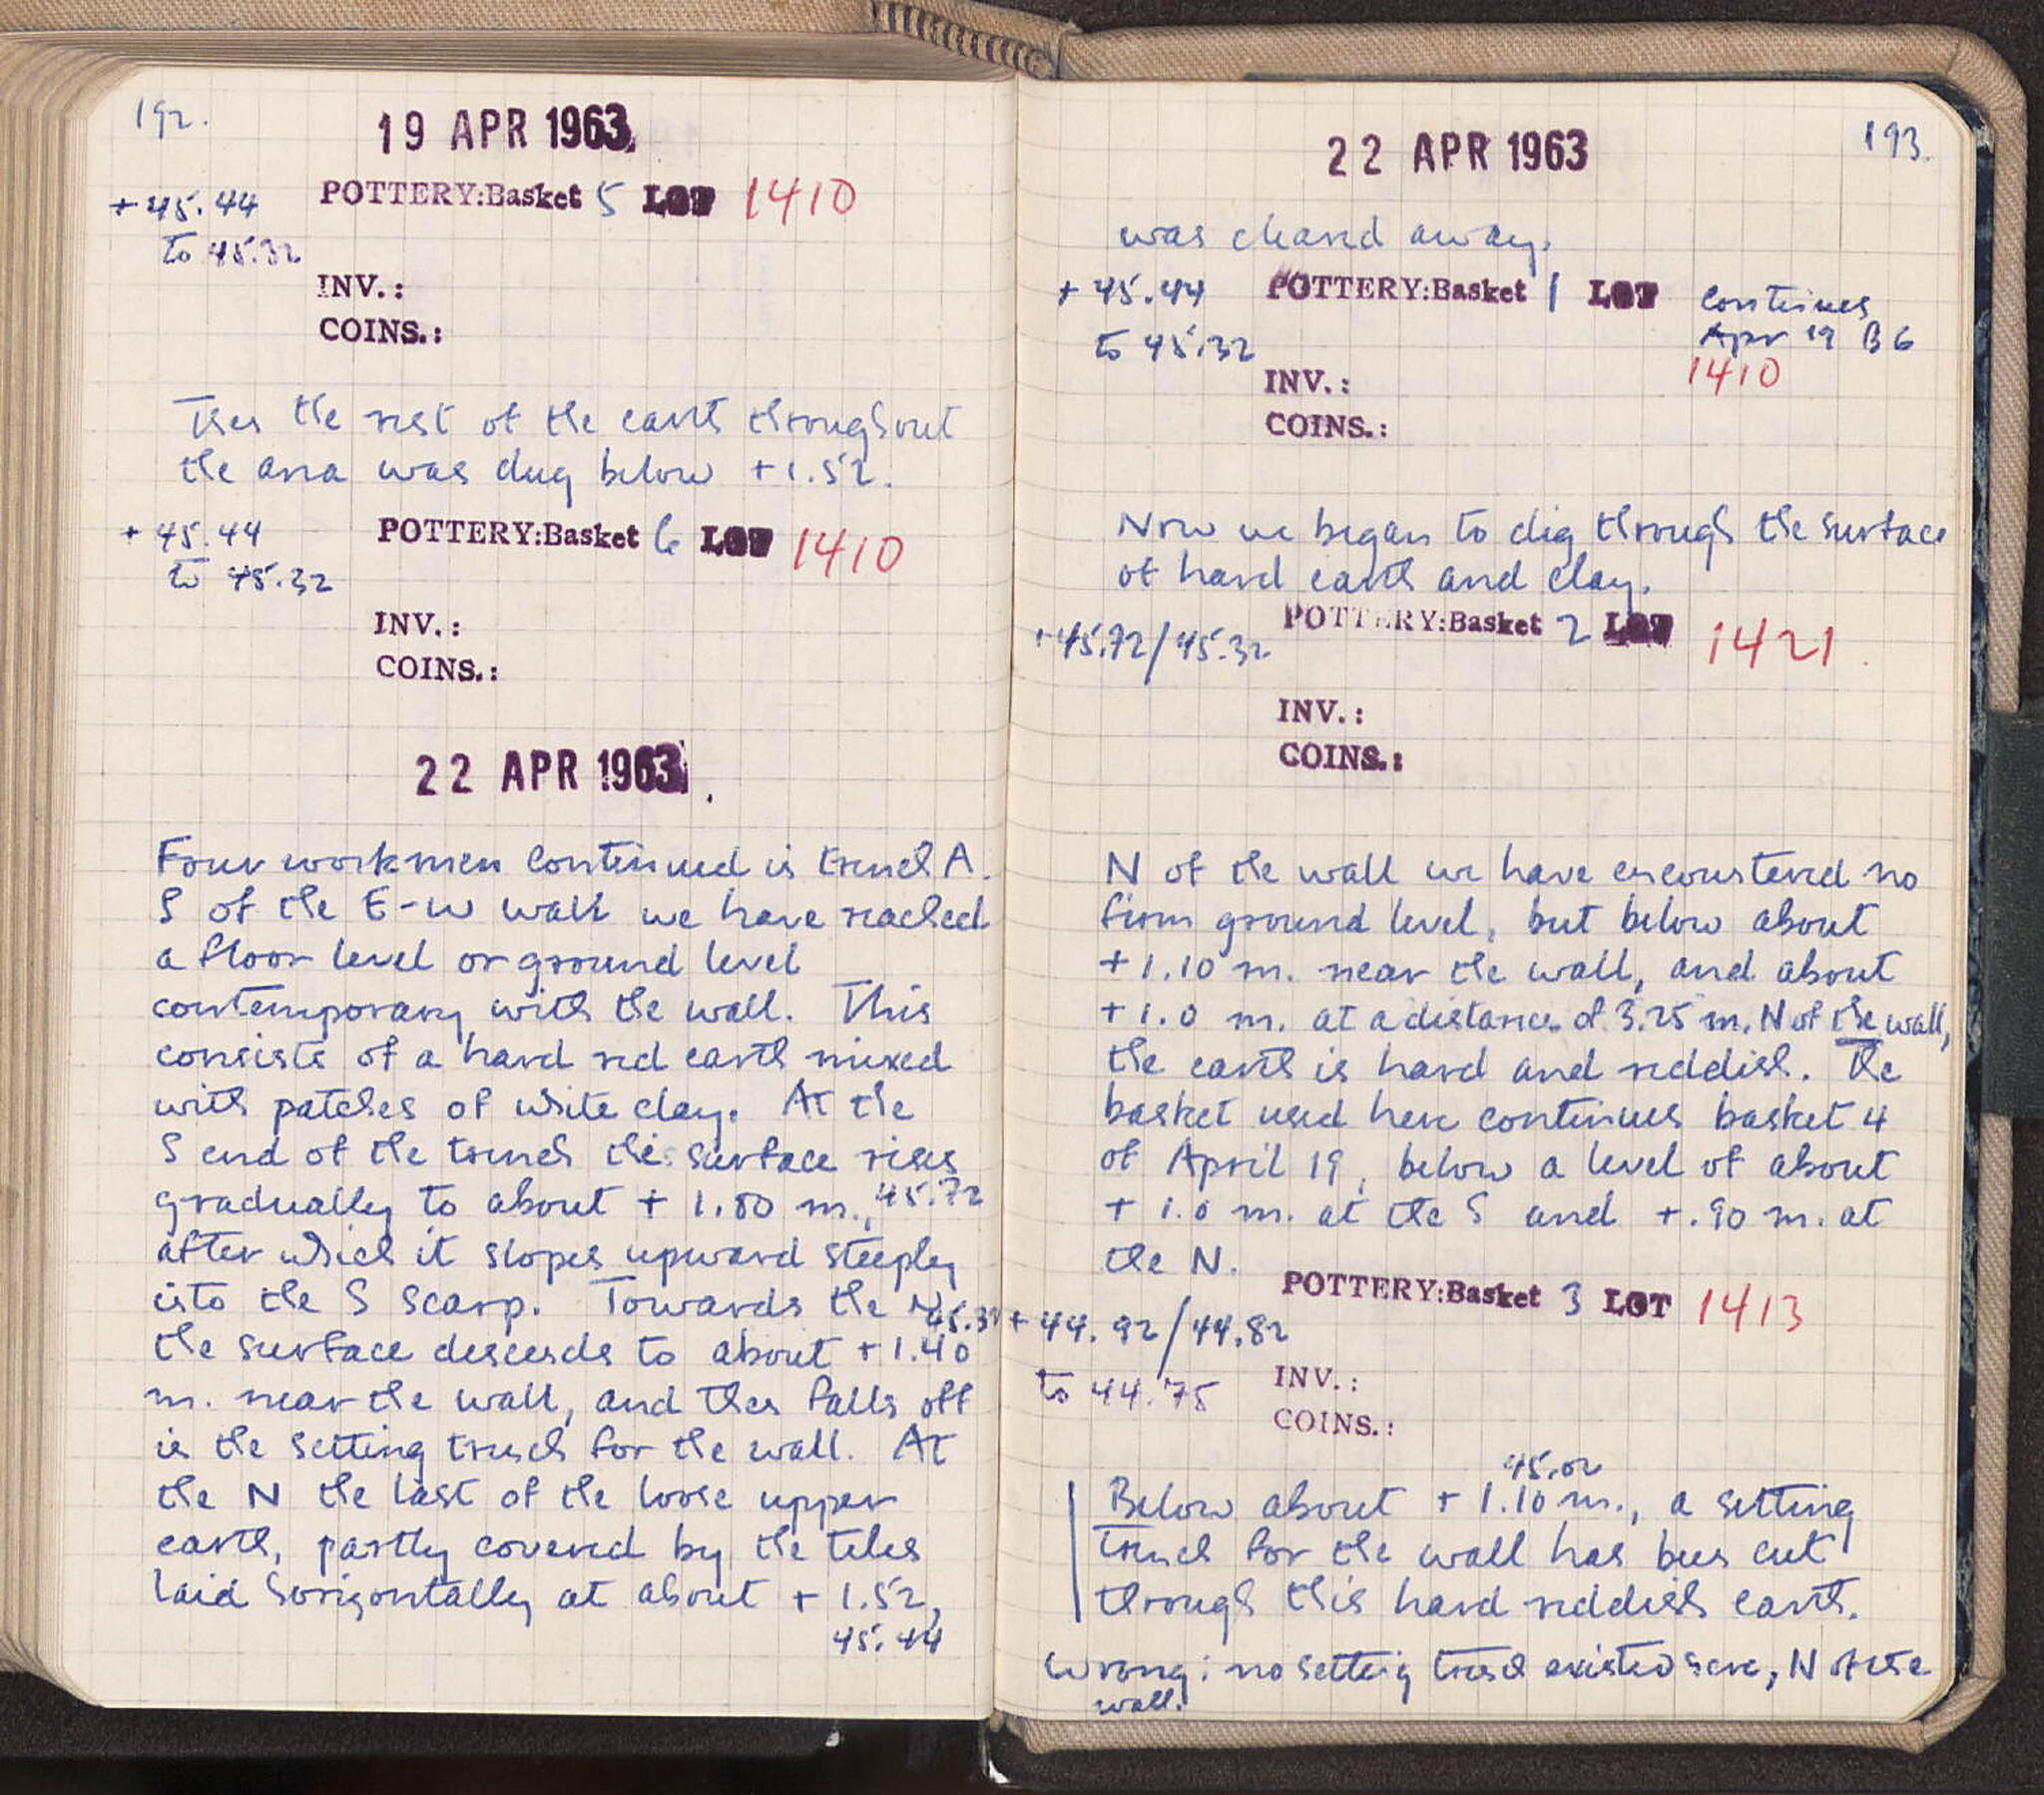 192.
19 APR 1963
+45.44 POTTERY:Basket 5 LOT 1410
to 45.32
INV.:
COINS.:
Then the rest of the earth throughout
the area was dug below +1.52.
+45.44 POTTERY:Basket 6 LOT 1410
to 45.32
INV.:
COINS.:
22 APR 1963.
Four workmen continued in trench A.
S of the E-W wall we have reached
a floor level or ground level
contemporary with the wall. This
consists of a hard red earth mixed
with patches of white clay. At the
S end of the trench the surface rises
gradually to about + 1.80 m., 45.72
after which it slopes upward steeply
into the S scarp. Towards the N
45.32
the surface descends to about +1.40
m. near the wall, and then falls off
in the setting trench for the wall. At
the N the last of the loose upper
earth, partly covered by the tiles
laid horizontally at about + 1.52,
45.44
193.
22 APR 1963
was cleared away.
+45.44 POTTERY:Basket 1 LOT continues
to 45.32 Apr 19 B6
1410
INV.:
COINS.:
Now we began to dig through the surface
of hard earth and clay.
+45.72/45.32 POTTERY:Basket 2 LOT 1421.
INV.:
COINS.:
N of the wall we have encountered no
firm ground level, but below about
+1.10 m. near the wall, and about
+1.0 m. at a distance of 3.25 m. N of the wall,
the earth is hard and reddish. The
basket used here continues basket 4
of April 19, below a level of about
+ 1.0 m. at the S and +.90 m. at
the N.
POTTERY:Basket 3 LOT 1413
+44.92/44.82
to 44.75 INV.:
COINS.:
45.02
Below about + 1.10 m., a setting
trench for the wall has been cut
through this hard reddish earth.
Wrong: no setting trench existed here, N of the
wall.